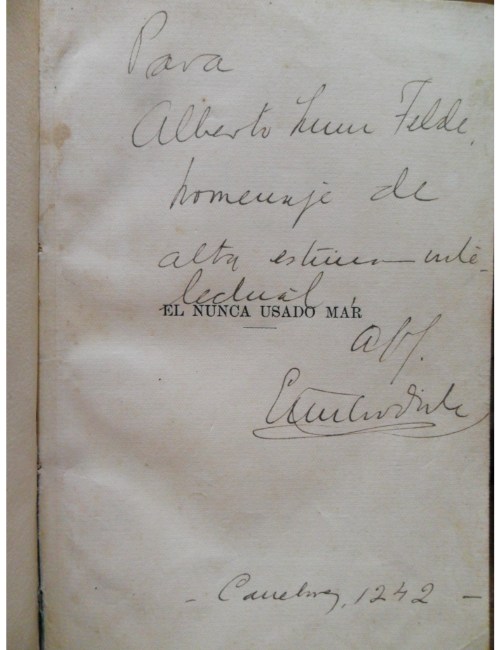 Para
Alberto Zum Felde,
homenaje de
alta estima inte-
lectual,
EL NUNCA USADO MAR
Emilio Oribe
- Canelones, 1242 -